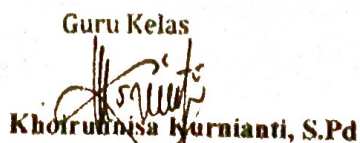 Guru Kelas
Khoirunnisa Kurnianti, S.Pd